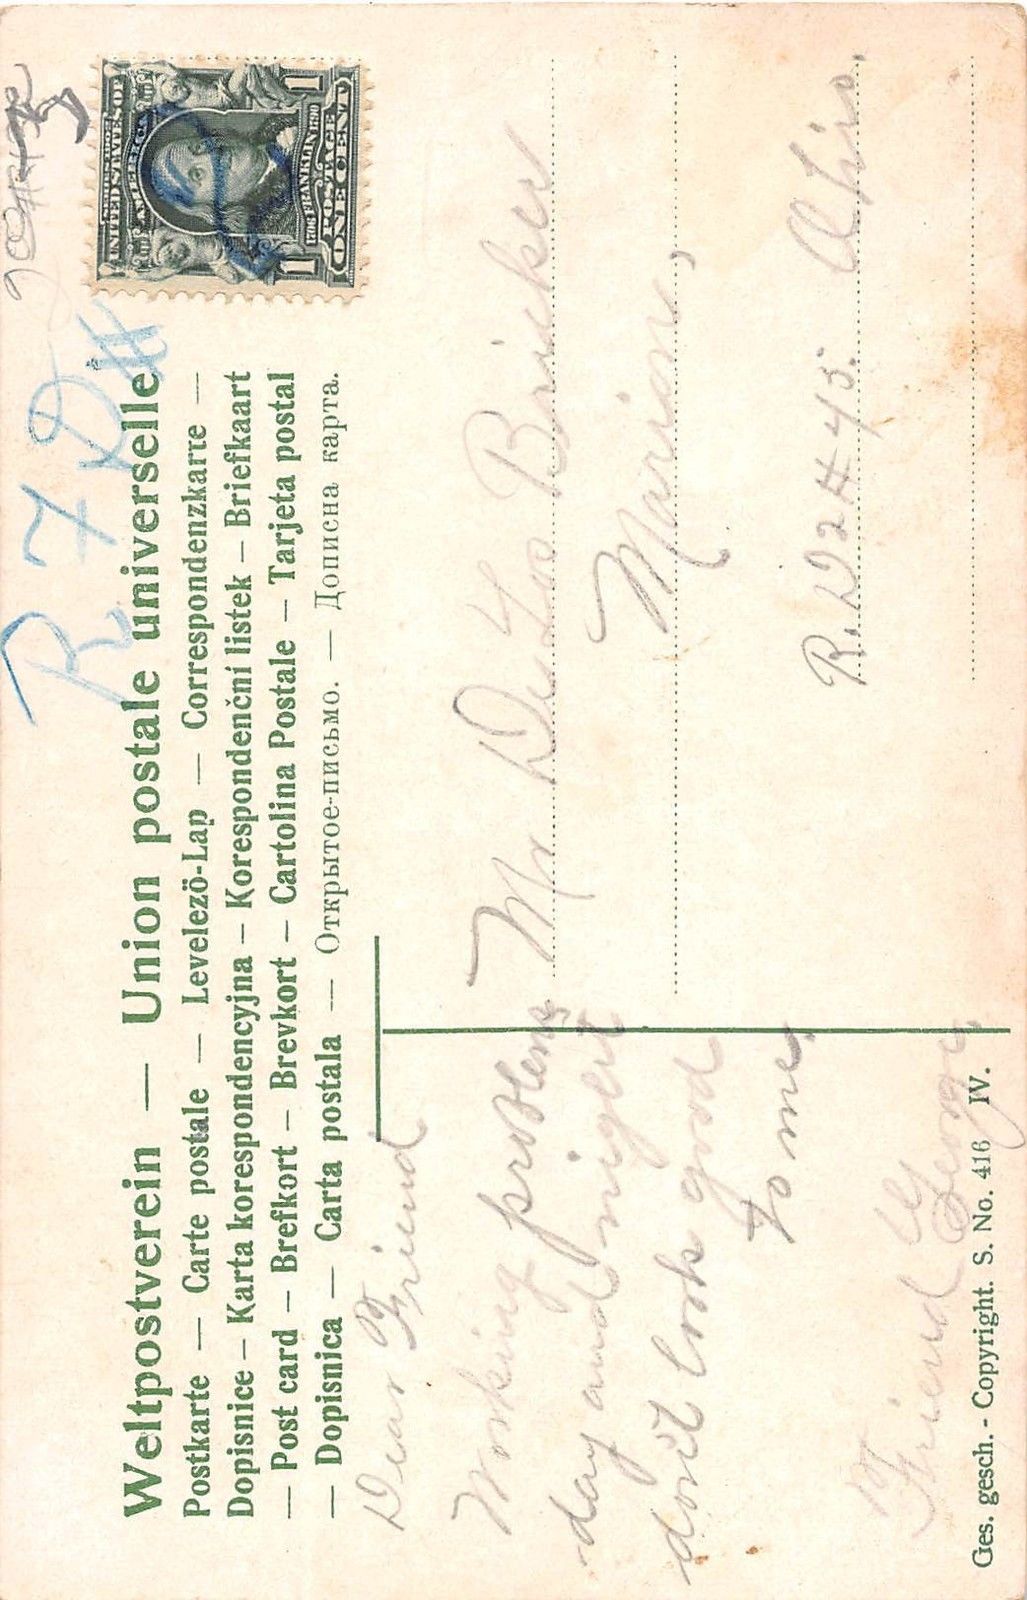 Weltpostverein — Union postale universelle
Postkarte — Carte postale — Levelezö-Lap — Correspondenzkarte —
Dopisnice – Karta korespondencyjna – Korespondenční listek – Briefkaart
— Post card – Brefkort – Brevkort – Cartolina Postale – Tarjeta postal
— Dopisnica — Carta postala — Открытое-письмо. — Дописна карта.
R 7 D
UNITED STATES OF
AMERICA
1706 FRANKLIN 1790
POSTAGE
1 ONE CENT 1
Dear Friend
Working problems
day and night
don't look good
to me.
Friend
George
Mr Bricker
Marion,
R. D 2 # 45. Ohio.
Ges. gesch. - Copyright. S. No. 416 IV.